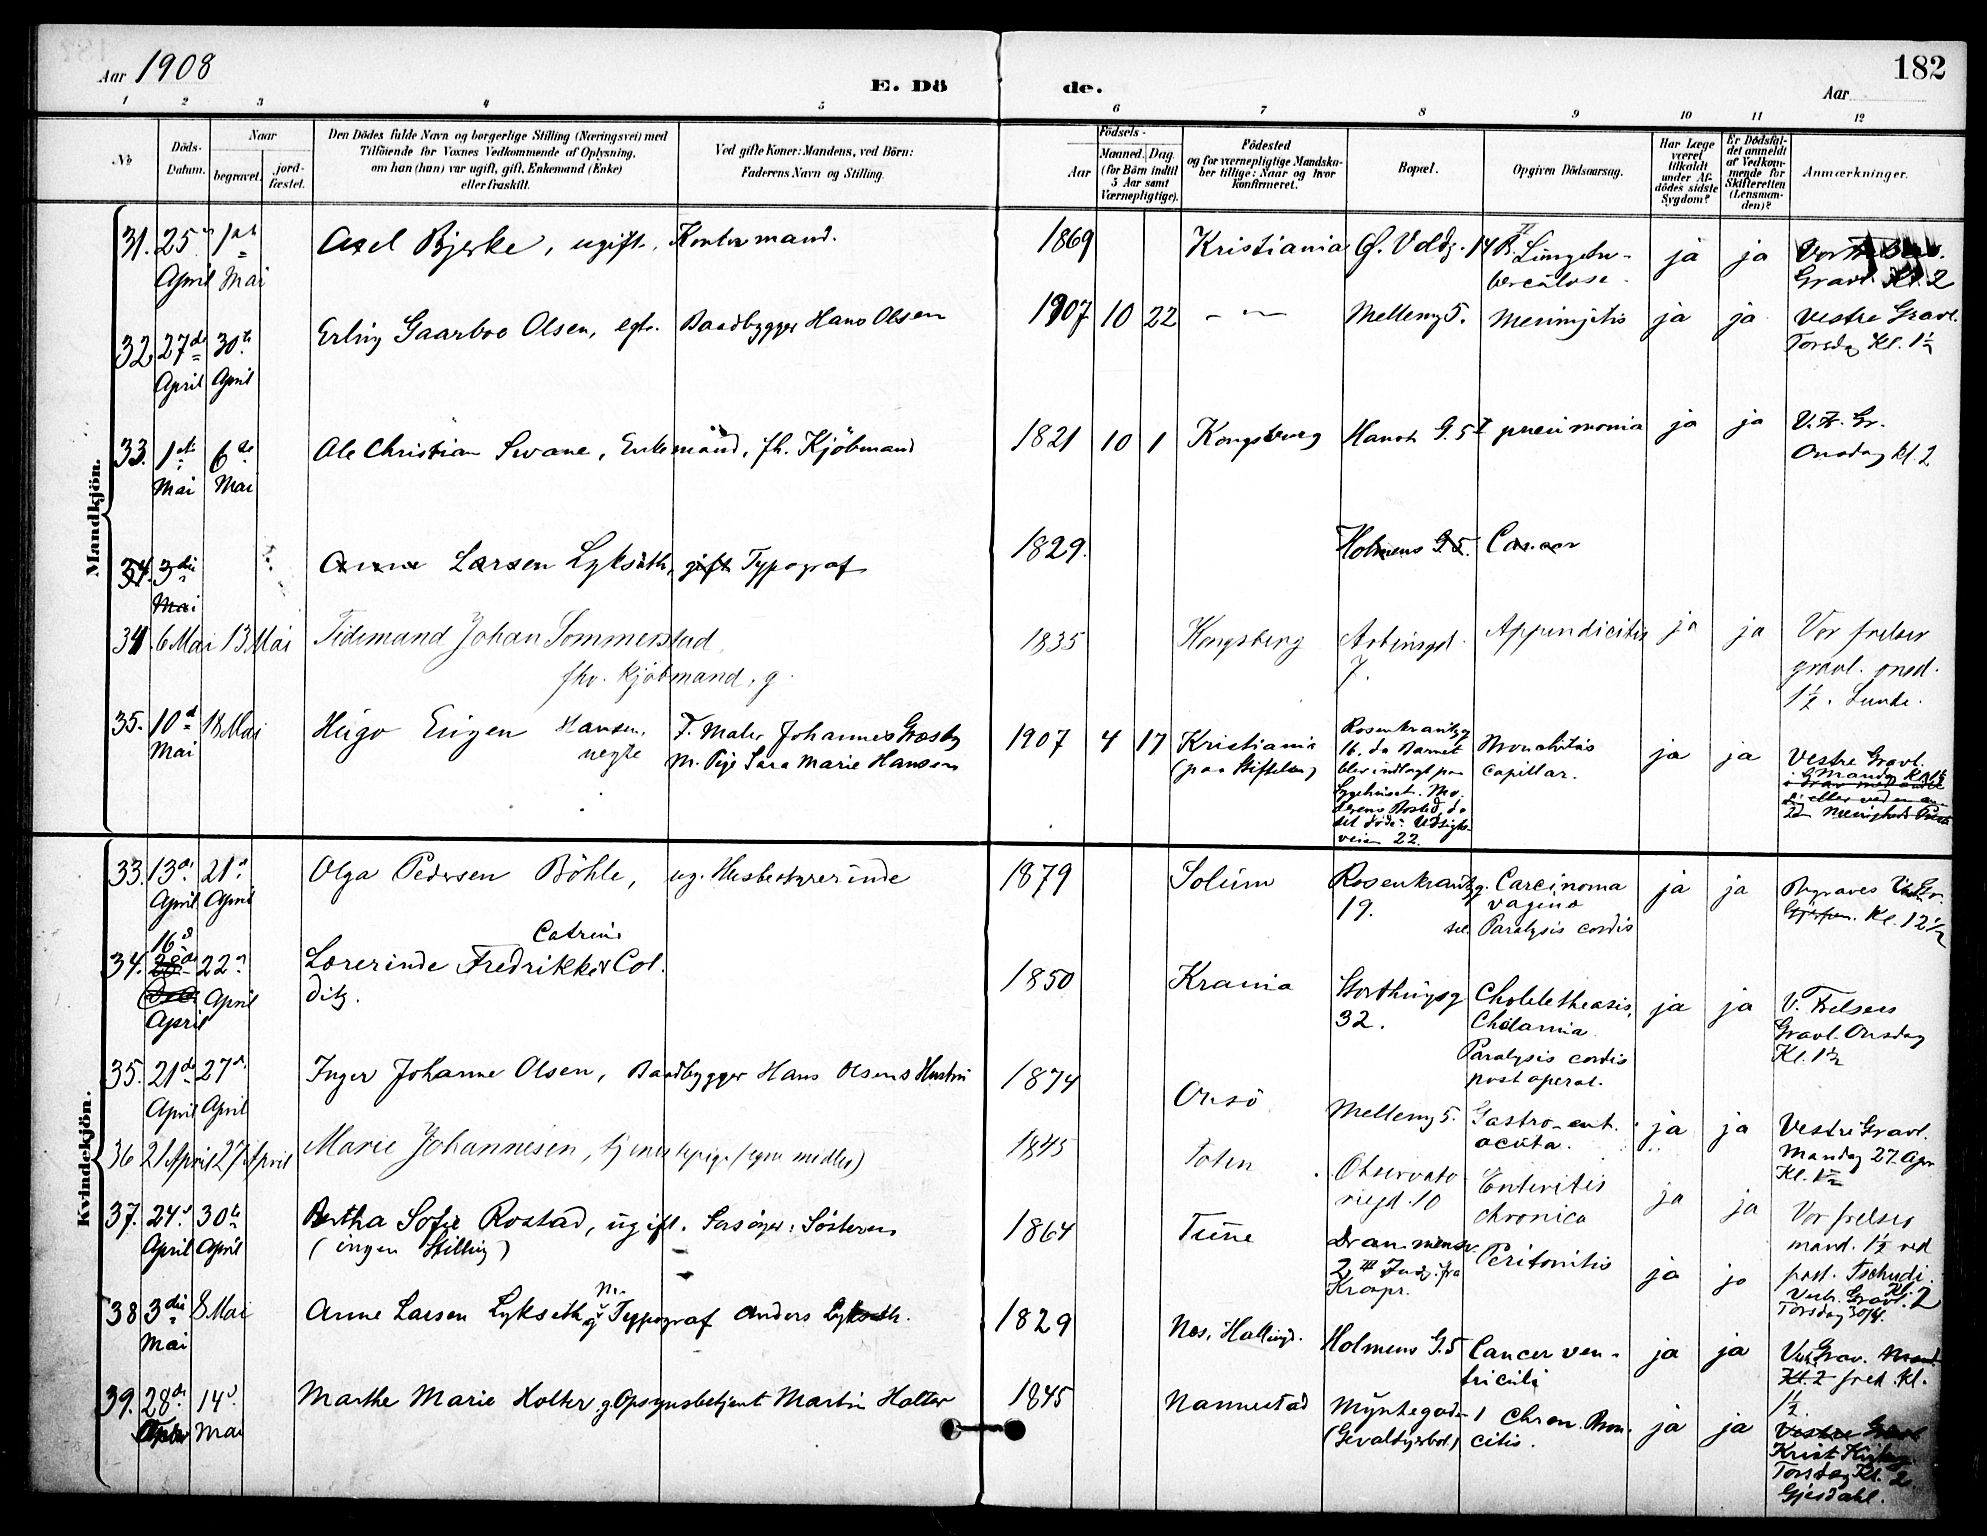 182
Aar 1908
E. Dö de.
Aar
1 2 3 4 5 6 7 8 9 10 11 12
No
Döds-Datum.
Naar
begravet.
jord-fæstet.
Den Dödes fulde Navn og borgerlige Stilling (Næringsvei) med
Tilföiende for Voxnes Vedkommende af Oplysning,
om han (hun) var ugift, gift, Enkemand (Enke)
eller fraskilt.
Ved gifte Koner: Mandens, ved Börn:
Faderens Navn og Stilling.
Födsels-
Aar
Maaned. Dag.
(for Börn indtil
5 Aar samt
Værnepligtige).
Födested
og for værnepligtige Mandska-
ber tillige: Naar og hvor
konfirmeret.
Bopæl.
Opgiven Dödsaarsag.
Har Læge
været
tilkaldt
under Af-
dödes sidste
Sygdom?
Er Dödsfal-
det anmeldt
af Vedkom-
mende for
Skifteretten
(Lensman-
den)?
Anmærkninger.
Mandkjön.
31. 25 April 1ste Mai Axel Bjerke, ugift, Kontormand. 1869 Kristiania Ø. Voldg. 14 B. II Lungetu-
bercülose. ja ja Vor
Gravl. Kl. 2
32. 27de April 30te April Erling Gaarboe Olsen, egte. Baadbygger Hans Olsen 1907 10 22 — " — Mellemg 5. Meningitis ja ja Vestre Gravl.
Torsdag Kl. 1½
33. 1ste Mai 6te Mai Ole Christian Svane, Enkemand, fh. Kjöbmand 1821 10 1 Kongsberg Havn G. 5 I pneumonia ja ja V. F. Gr.
Onsdag kl. 2
34. 3die Mai Anne Larsen Lykseth, gift Typograf 1829. Holmens G. 5. Cancer
34. 6 Mai 13 Mai Tidemand Johan Sommerstad
fhv. kjöbmand, g. 1835 Kongsberg Arbinsgd.
7. Appendicitis ja ja Vor frelser
gravl. onsd.
1½. Lunde.
35. 10d Mai 18 Mai Hugo Eugen Hansen,
uegte F. Maler Johannes Grosby
M. Pige Sara Marie Hansen 1907 4 17 Kristiania
(paa Stiftelsen) Rosenkrantzg
16, da Barnet
blev indlagt paa
Sygehuset. Mo-
derens Bosted, da
det döde: Udsigts-
veien 22. Bronchitis
capillar. ja ja Vestre Gravl.
Mandag
Kvindekjön.
33. 13de April 21de April Olga Pedersen Böhle, ug. Husbestyrerinde 1879 Solum Rosenkrantzg.
19. Carcinoma
vagina
Paralysis cordis ja ja Begraves Vestre Gr.
Kl. 12½
34. 16d April 22d April Lærerinde Fredrikke Catrine Col-
ditz. 1850 Krania Storthingsg
32. Cholelitheasis,
Cholamia
Paralysis cordis
post operat. ja ja V. Frelsers
Gravl. Onsdag
Kl. 1½
35. 21de April 27d April Inger Johanne Olsen, Baadbygger Hans Olsens Hustru 1874 Onsö Mellemg 5. Gastro-ent.
acuta. ja ja Vestre Gravl.
Mandag 27. Apr
Kl. 1½
36 21 April 27 April Marie Johannesen, tjenestepige (egne midler) 1845 Toten Observato-
riegd. 10 Enteritis
chronica ja ja Vor frelser
mand. 1½ ved
past. Tschudi.
37. 24d April 30te April Bertha Sofie Rostad, ugift. Forsörger: Sösteren
(ingen Stilling) 1864 Tune Drammensv.
2, III Indg. fra
Kroapr. Peritonitis ja ja Vestr. Gravl. Kl. 2
Torsdag 30/4.
38 3die Mai 8 Mai Anne Larsen Lykseth g. Typograf Anders Lykseth. 1829 Næs, Hallingd. Holmens G. 5 Cancer ven-
triculi ja ja Vestr Grav. Mand.
Kl. 2 fred. Kl.
1½.
39. 28de April 14d Mai Marthe Marie Holter, g. Opsynsbetjent Martin Holter 1845 Nannestad Myntegaden 1
Chron. Bron-
citis. ja ja Vestre Gravl
Torsdag Kl. 2
Gjesdahl.